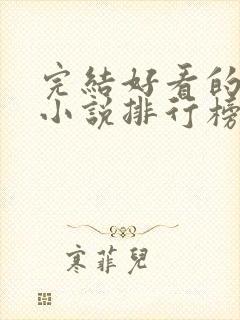 完結好看的
小說排行榜
寒菲兒